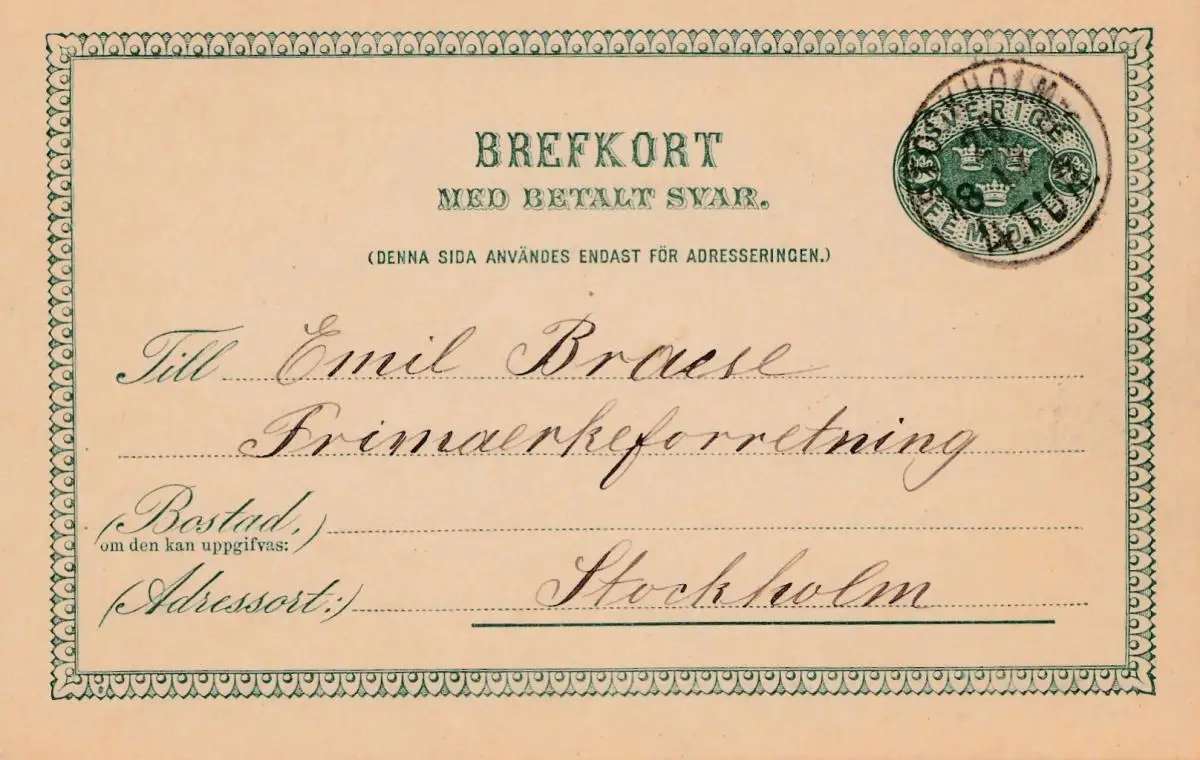 BREFKORT
MED BETALT SVAR.
(DENNA SIDA ANVÄNDES ENDAST FÖR ADRESSERINGEN.)
SVERIGE
FEM ÖRE
Till Emil Braese
Frimaerkeforretning
(Bostad,)
om den kan uppgifvas:
(Adressort:) Stockholm